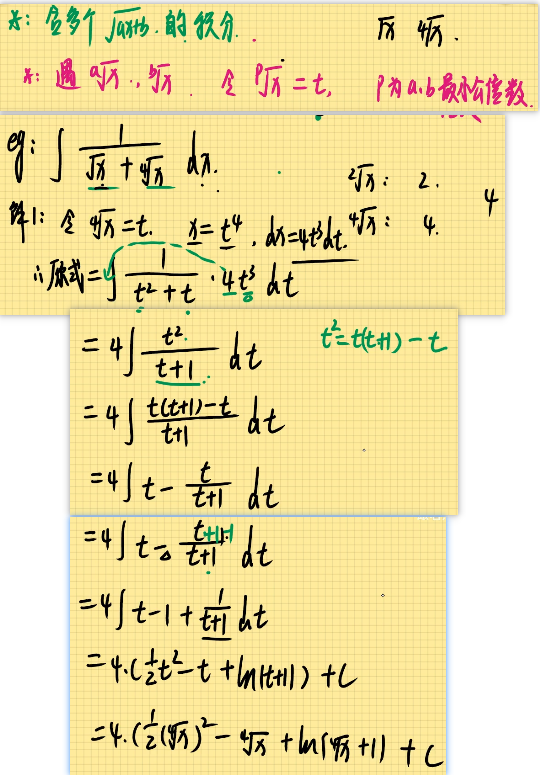 ※: 含多个 √ax+b 的积分. √x ∜x.
※: 遇 ᵃ√x, ᵇ√x. 令 ᵖ√x = t, p为a.b最小公倍数.
eg: ∫ 1/(√x + ∜x) dx. ²√x: 2.
解1: 令 ∜x = t. x = t⁴, dx = 4t³dt. ∜x: 4. 4
∴ 原式 = ∫ 1/(t² + t) · 4t³ dt
= 4∫ t²/(t+1) dt t² = t(t+1) − t
= 4∫ (t(t+1)−t)/(t+1) dt
= 4∫ t − t/(t+1) dt
= 4∫ t − (t+1−1)/(t+1) dt
= 4∫ t − 1 + 1/(t+1) dt
= 4·(½t² − t + ln|t+1|) + C
= 4·(½(∜x)² − ∜x + ln|∜x+1|) + C